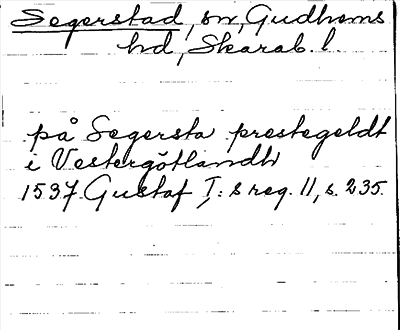 Segerstad, sn, Gudhems
hd, Skarab. l.
på Segersta prestegeldt
i Vestergötlandh
1537 Gustaf I:s reg. 11, s. 235.